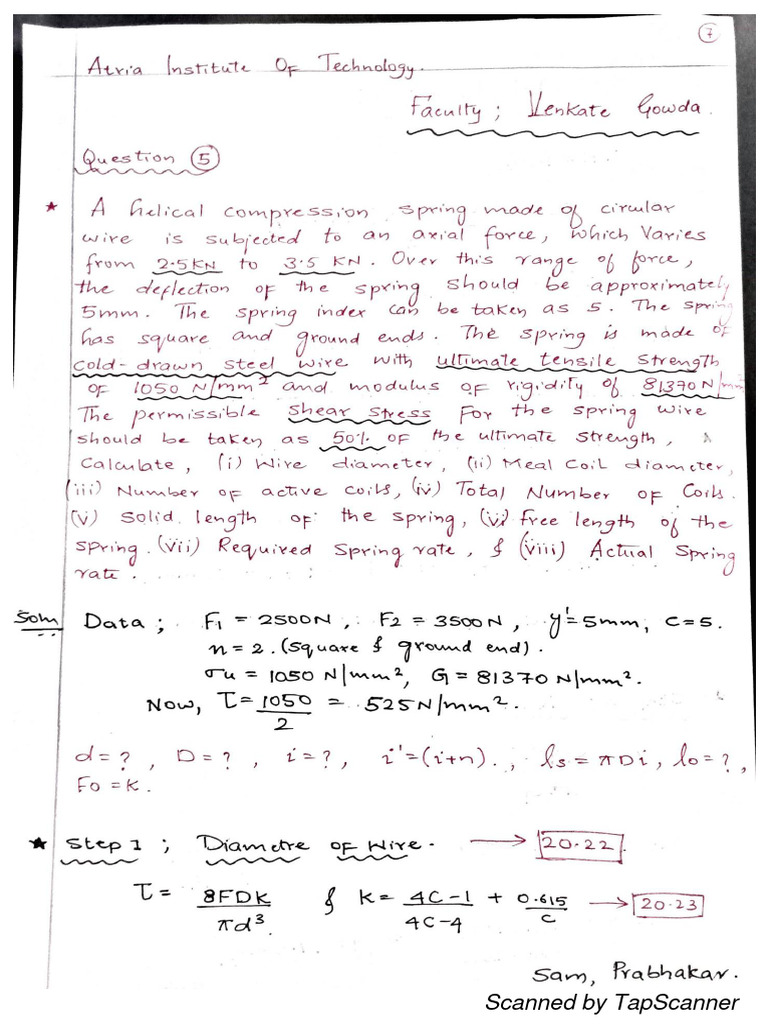 7
Atria Institute Of Technology.
Faculty; Venkate Gowda.
Question 5
* A helical compression spring made of circular
wire is subjected to an axial force, which varies
from 2.5KN to 3.5 KN. Over this range of force,
the deflection of the spring should be approximately
5mm. The spring index can be taken as 5. The spring
has square and ground ends. The spring is made of
cold-drawn steel wire with ultimate tensile strength
of 1050 N/mm² and modulus of rigidity of 81370 N/mm
The permissible shear stress for the spring wire
should be taken as 50% of the ultimate strength,
Calculate, (i) Wire diameter, (ii) Meal Coil diameter,
(iii) Number of active coils, (iv) Total Number of Coils.
(v) Solid length of the spring, (vi) free length of the
spring. (vii) Required Spring rate, & (viii) Actual Spring
rate.
Soln Data; F1 = 2500N, F2 = 3500N, y' = 5mm, C = 5.
n = 2. (square & ground end).
σu = 1050 N/mm², G = 81370 N/mm².
Now, τ = 1050/2 = 525 N/mm².
d = ?, D = ?, i = ?, i' = (i+n)., ls = πDi, lo = ?,
Fo = K.
* Step 1; Diametre of Wire. → 20.22
τ = 8FDK/πd³ & k = 4C-1/4C-4 + 0.615/C → 20.23
Sam, Prabhakar.
Scanned by TapScanner